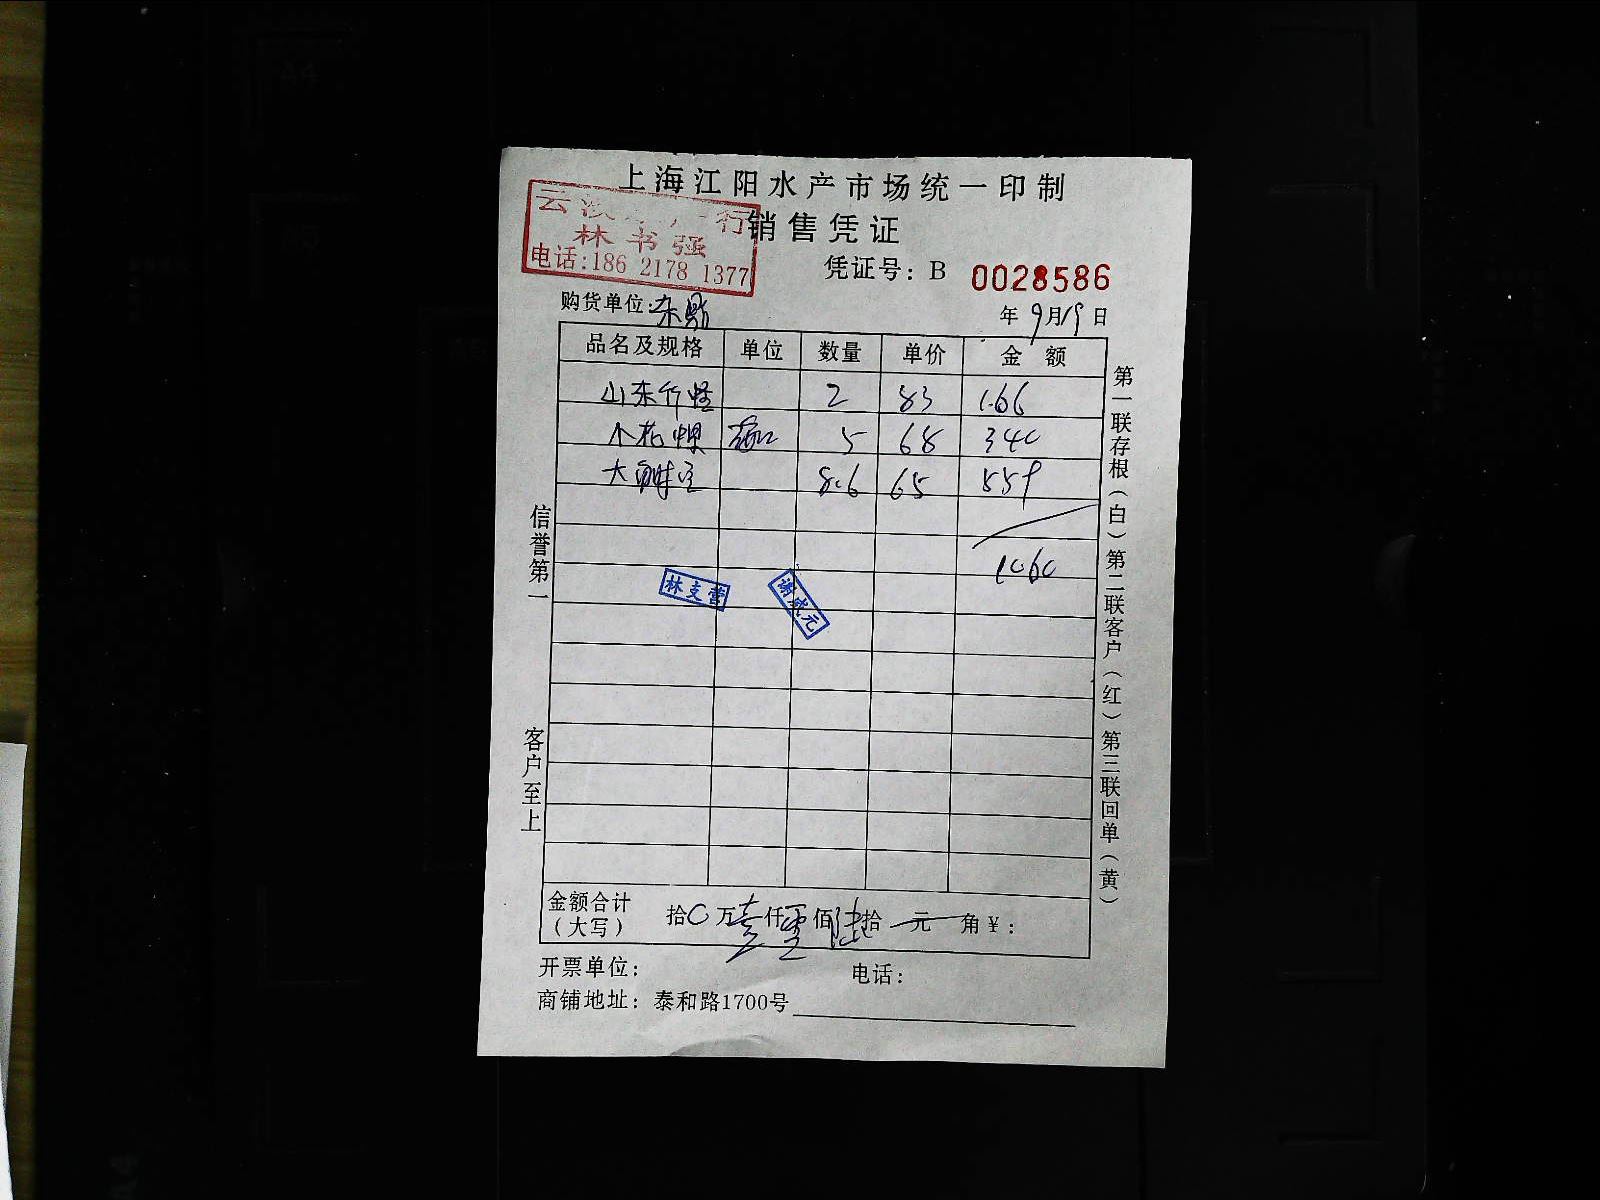 上海江阳水产市场统一印制
销售凭证
云 行
林书强
电话:186 2178 1377
凭证号: B 0028586
购货单位:
年9月19日
品名及规格 单位 数量 单价 金 额
山东竹蛏 2 83 166
5 68 340
大 8.6 65 559
1060
林支营
谢成元
信誉第一
客户至上
第一联存根(白)第二联客户(红)第三联回单(黄)
金额合计
(大写)
拾0万壹仟零佰陆拾 元 角¥:
开票单位: 电话:
商铺地址: 泰和路1700号